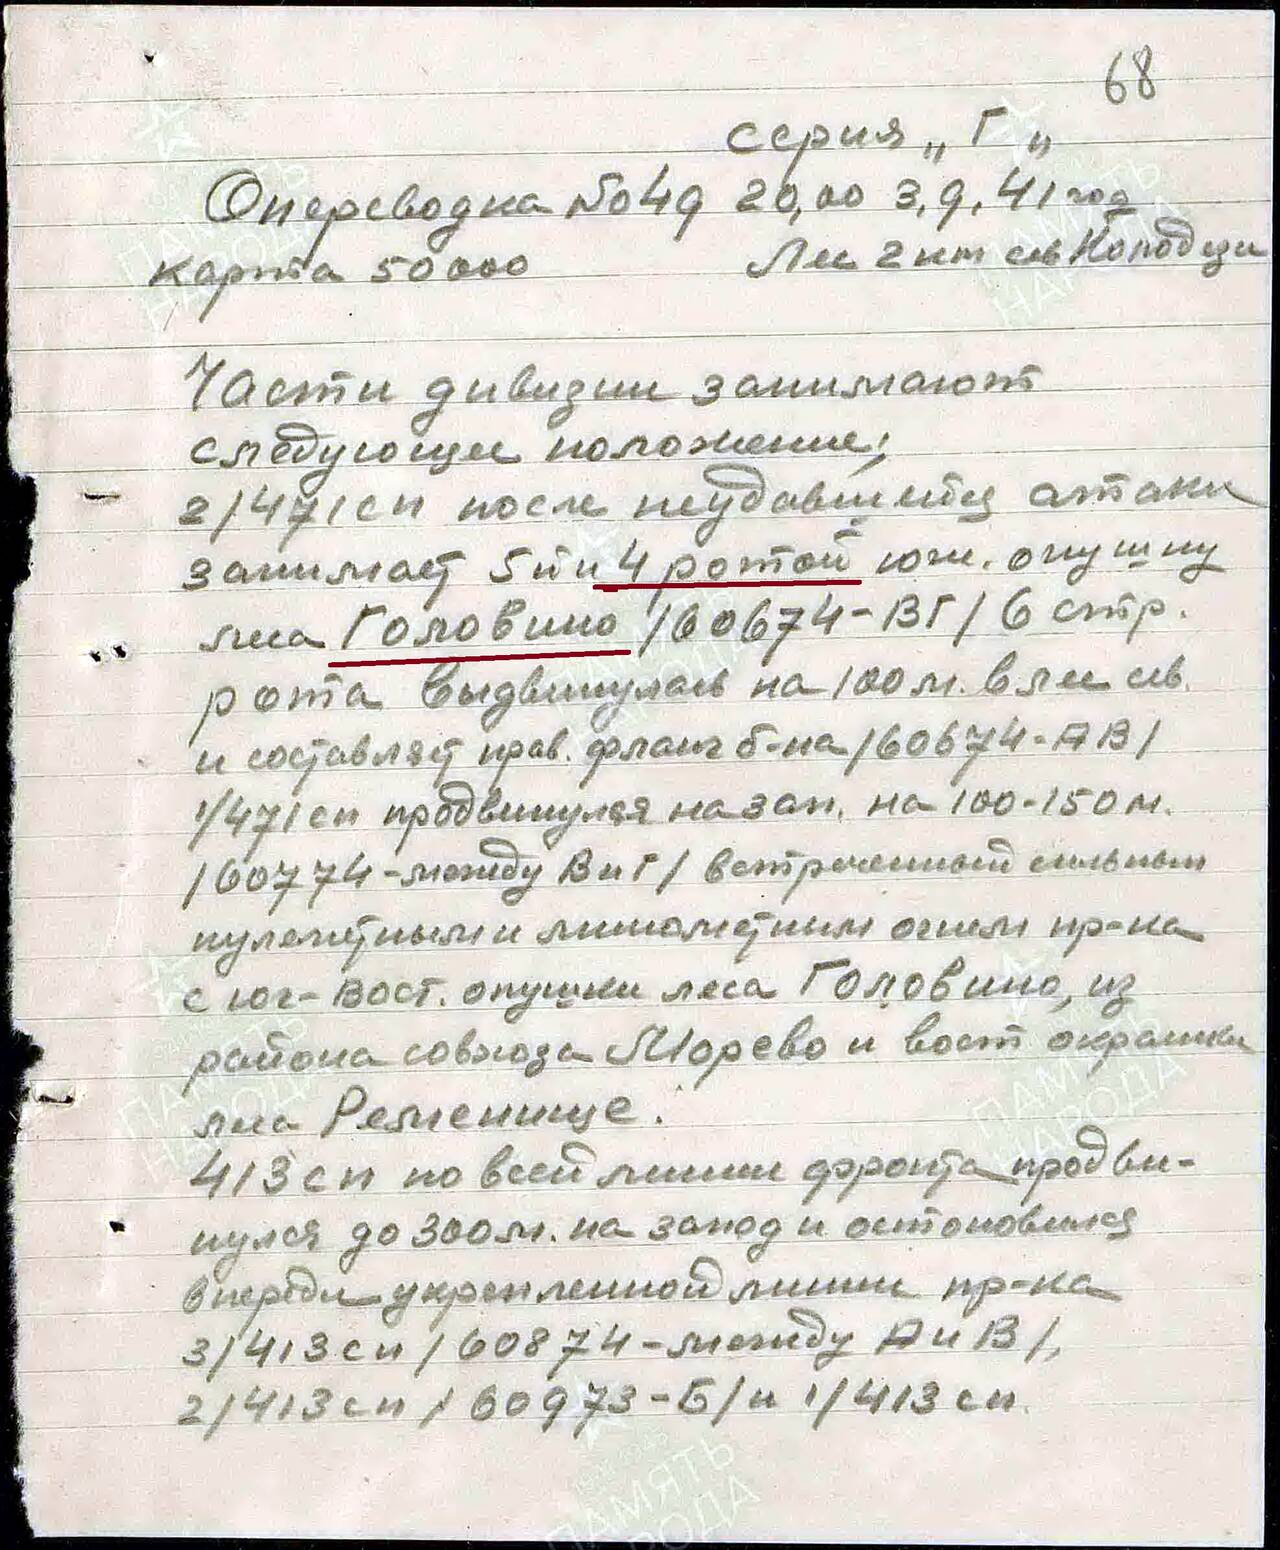 68
серия „Г"
Оперсводка №049 20,00 3,9,41 год
Карта 50000 Лес 2 км сев Колодези
Части дивизии занимают
следующее положение;
2/471 сп после неудавшейся атаки
занимает 5й и 4 ротой южн. опушку
леса Головино /60674-ВГ/ 6 стр.
рота выдвинулась на 100 м. в лес сев.
и составляет прав. фланг б-на /60674-АВ/
1/471 сп продвинулся на зап. на 100-150 м.
/60774-между В и Г/ встреченный сильным
пулеметным и минометным огнем пр-ка
с юг-вост. опушки леса Головино, из
района совхоза Морево и вост окраины
леса Ременище.
413 сп по всей линии фронта продви-
нулся до 300 м. на запад и остоновился
впереди укрепленной линии пр-ка
3/413 сп /60874-между А и В/,
2/413 сп /60973-Б/ и 1/413 сп.
ПАМЯТЬ
НАРОДА
ПАМЯТЬ
НАРОДА